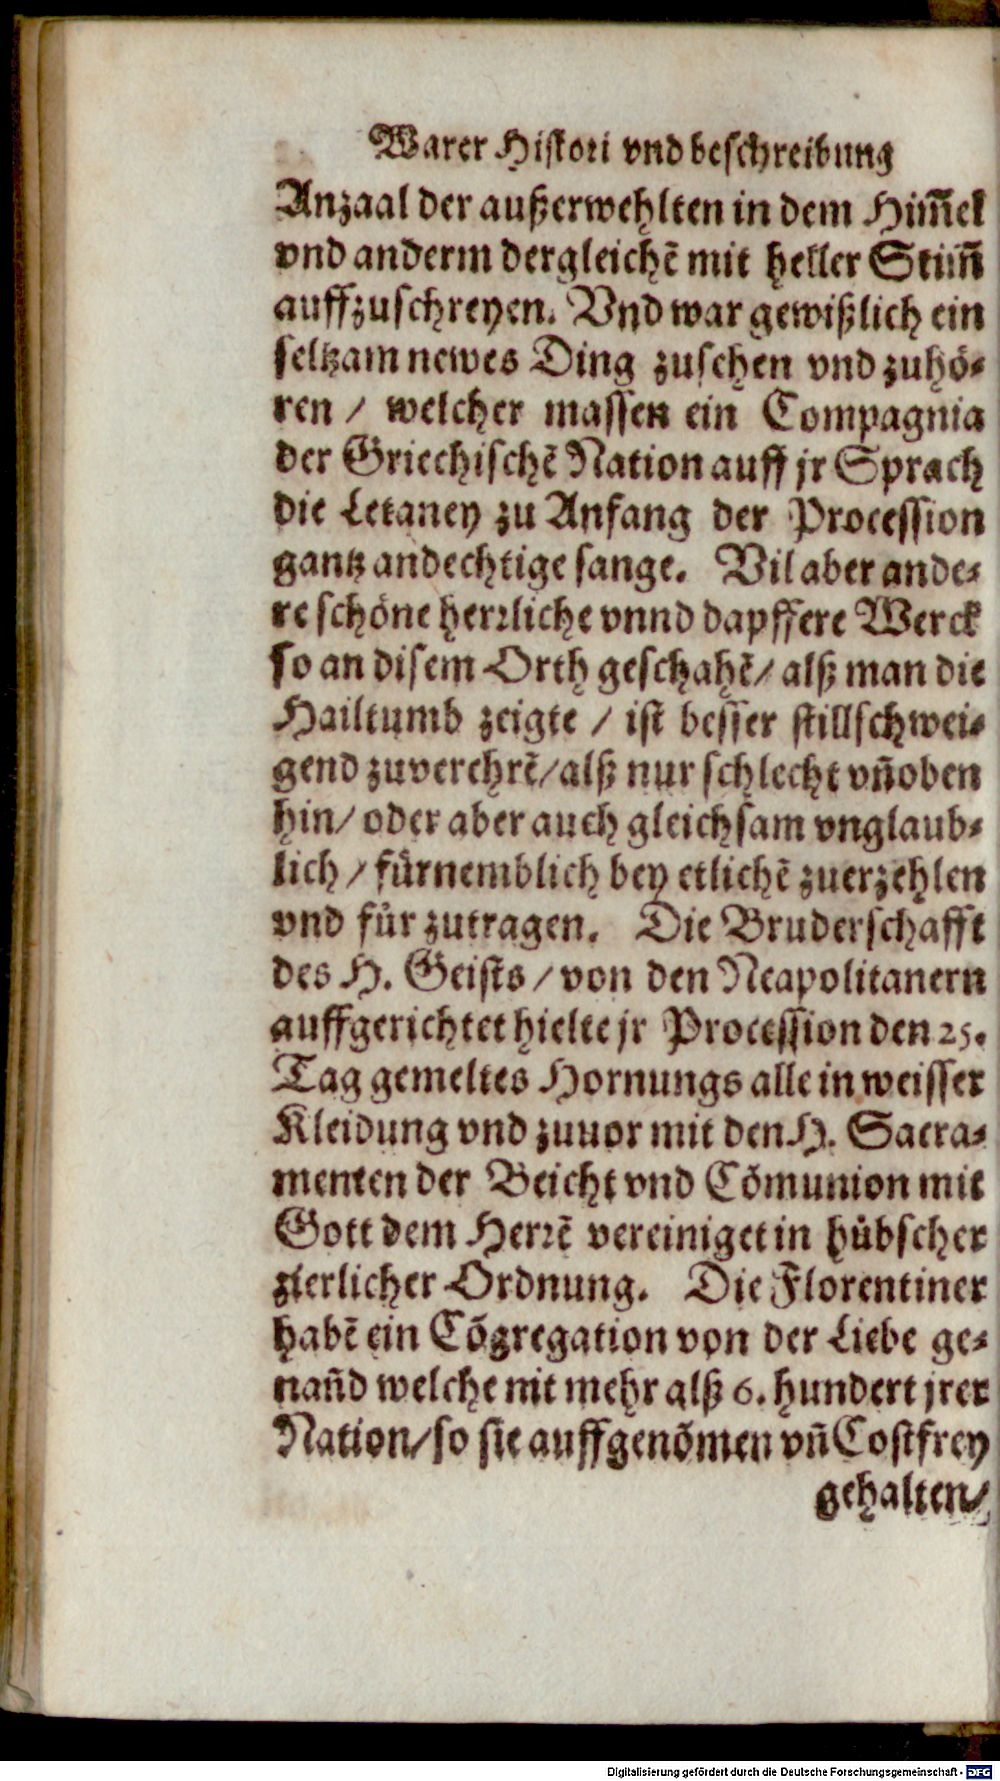 Warer Histori vnd beschreibung
Anzaal der außerwehlten in dem Him̅el
vnd anderm dergleichẽ mit heller Stim̅
auffzuschreyen. Vnd war gewißlich ein
seltzam newes Ding zusehen vnd zuhö⸗
ren / welcher massen ein Compagnia
der Griechischẽ Nation auff jr Sprach
die Letaney zu Anfang der Procession
gantz andechtige sange. Vil aber ande⸗
re schöne herrliche vnnd dapffere Werck
so an disem Orth geschahẽ/ alß man die
Hailtumb zeigte / ist besser stillschwei⸗
gend zuverehrẽ/ alß nur schlecht vñ oben
hin/ oder aber auch gleichsam vnglaub⸗
lich / fürnemblich bey etlichẽ zuerzehlen
vnd für zutragen. Die Bruderschafft
des H. Geists / von den Neapolitanern
auffgerichtet hielte jr Procession den 25.
Tag gemeltes Hornungs alle in weisser
Kleidung vnd zuuor mit den H. Sacra⸗
menten der Beicht vnd Cõmunion mit
Gott dem Herrẽ vereiniget in hübscher
zierlicher Ordnung. Die Florentiner
habẽ ein Cõgregation von der Liebe ge⸗
nañd welche nit mehr alß 6. hundert jrer
Nation/ so sie auffgenõmen vñ Costfrey
gehalten/
Digitalisierung gefördert durch die Deutsche Forschungsgemeinschaft - DFG